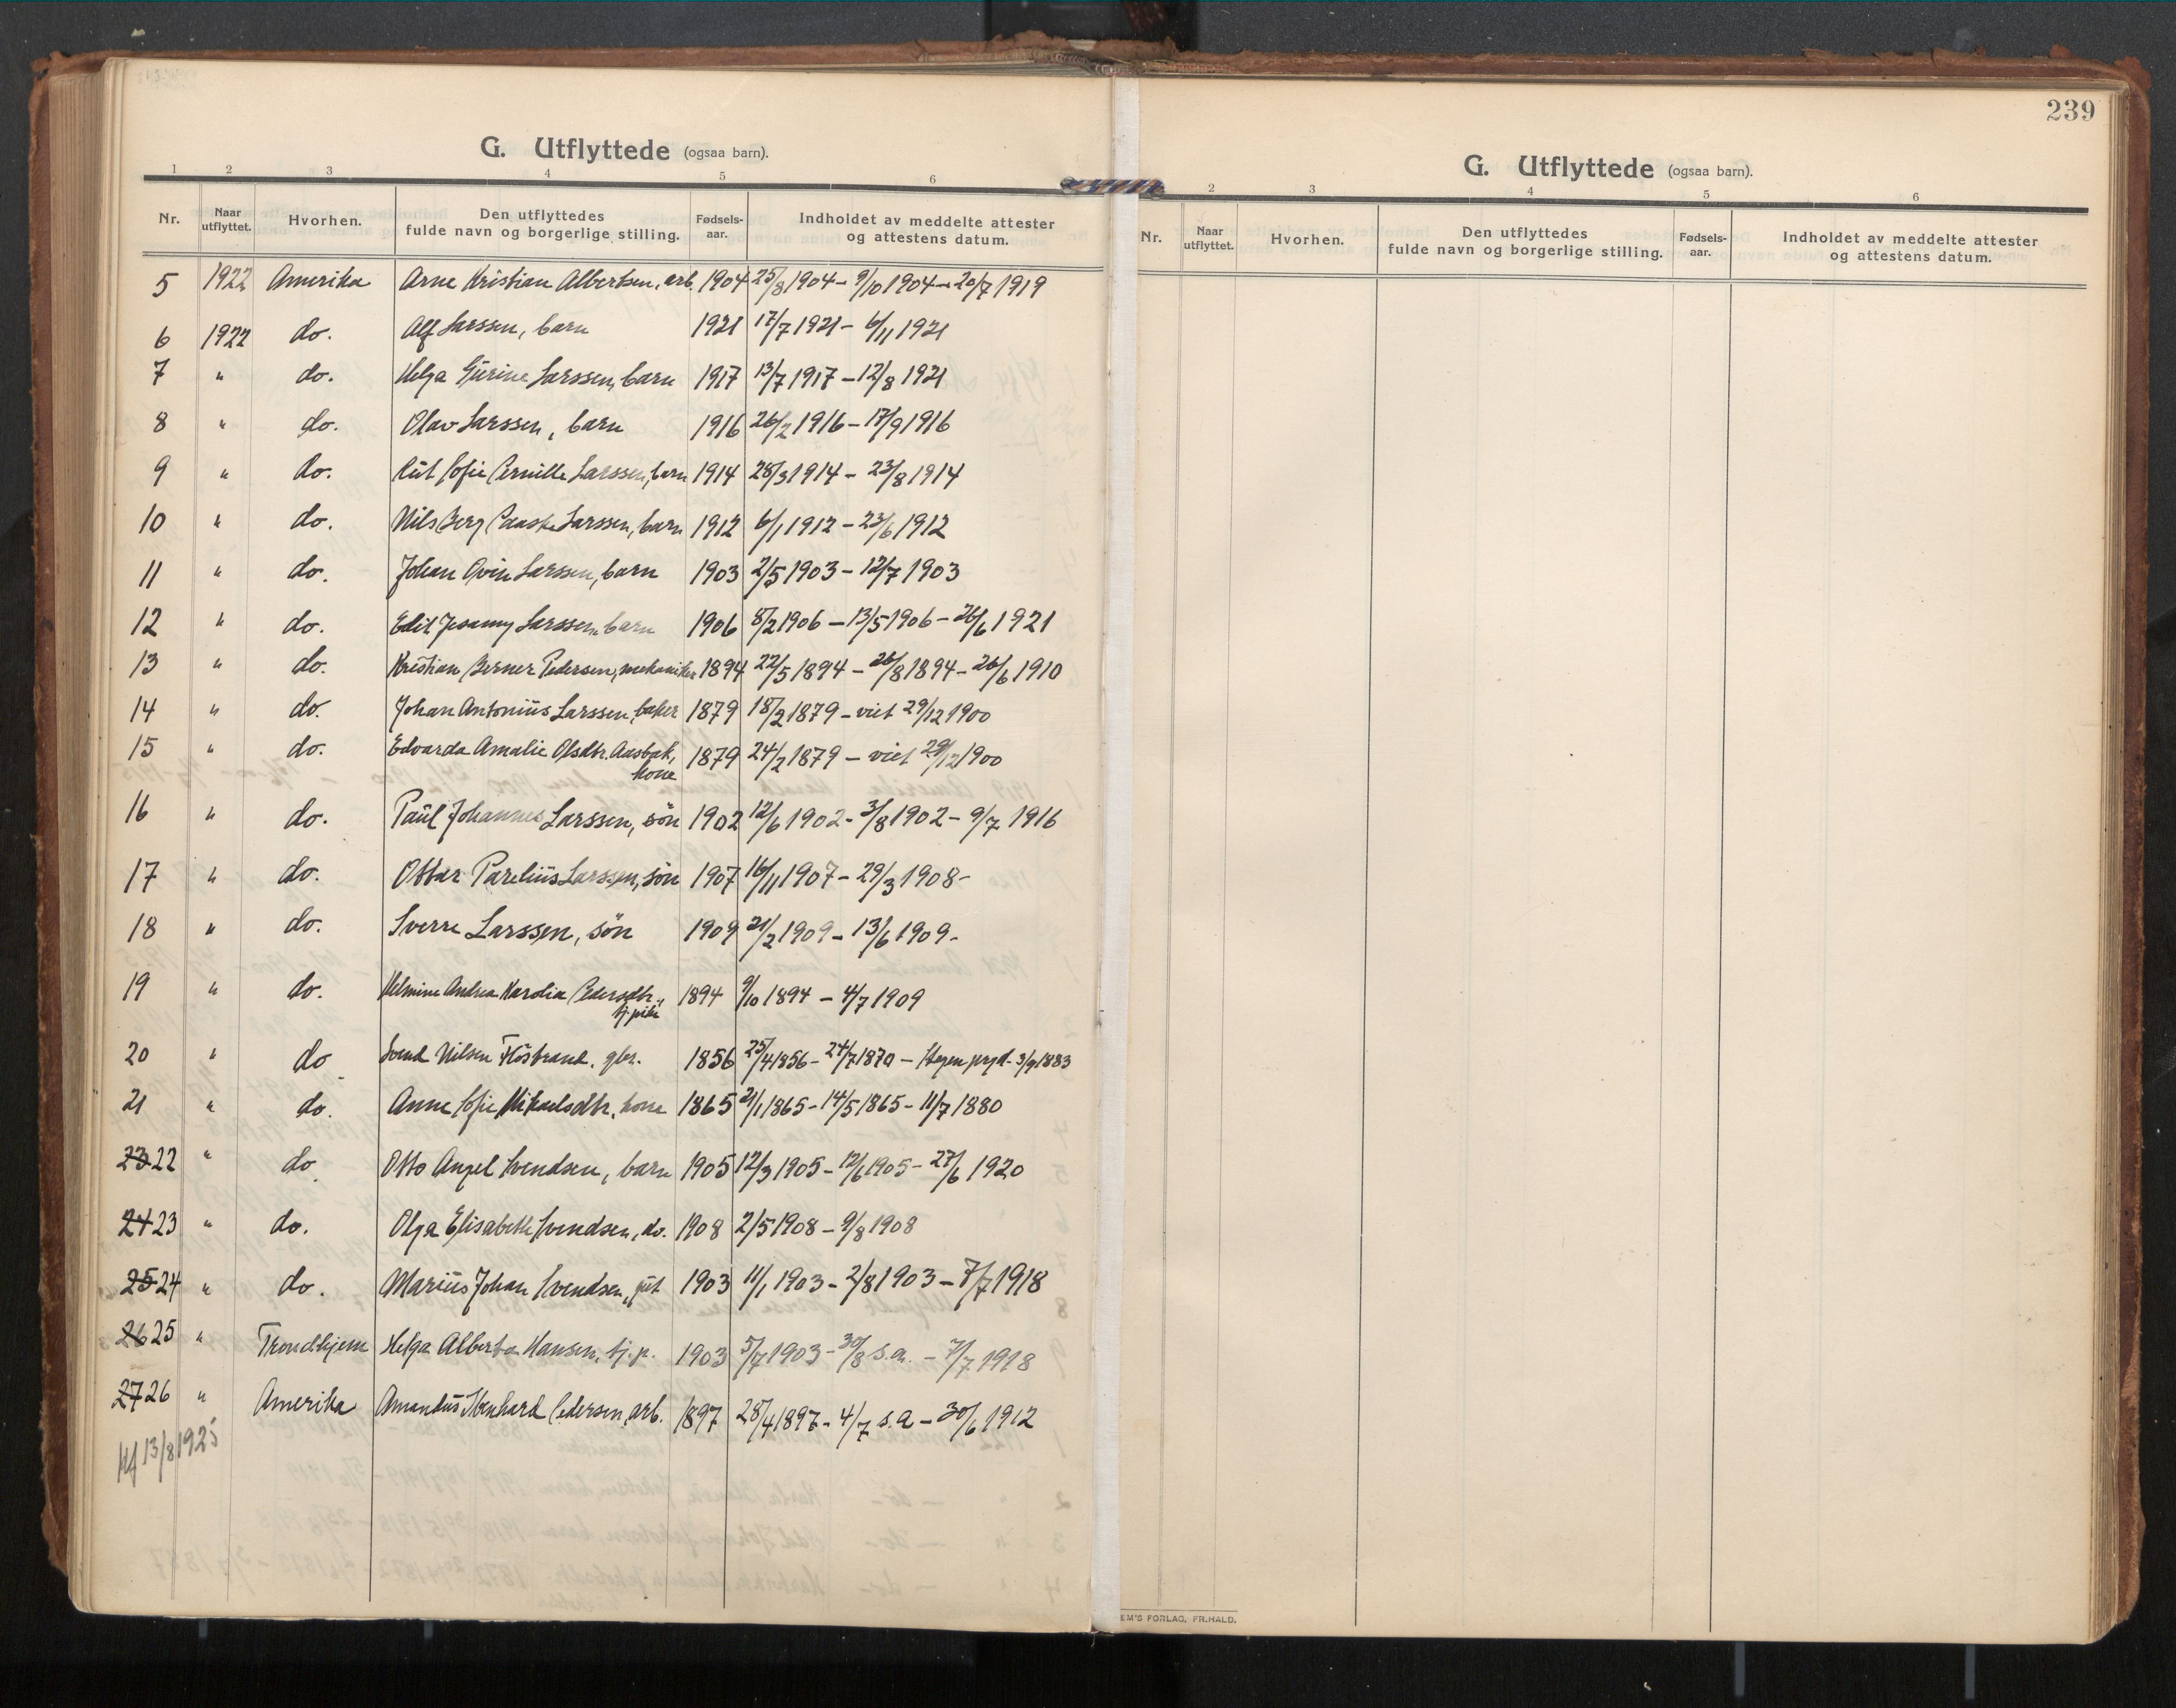 239
G. Utflyttede (ogsaa barn).
1 2 3 4 5 6
Nr. Naar utflyttet. Hvorhen. Den utflyttedes fulde navn og borgerlige stilling. Fødsels-aar. Indholdet av meddelte attester og attestens datum.
5 1922 Amerika Arne Kristian Albertsen, arb. 1904 25/8 1904 - 9/10 1904 - 20/7 1919
6 1922 do. Alf Larssen, barn 1921 17/7 1921 - 6/11 1921
7 " do. Helga Gurine Larssen, barn 1917 13/7 1917 - 12/8 1921
8 " do. Olav Larssen, barn 1916 26/2 1916 - 17/9 1916
9 " do. Rut Sofie Pernille Larssen, barn 1914 28/3 1914 - 23/8 1914
10 " do. Nils Berg Paaske Larssen, barn 1912 6/1 1912 - 23/6 1912
11 " do. Johan Larssen, barn 1903 2/5 1903 - 12/7 1903
12 " do. Edit Larssen, barn 1906 8/2 1906 - 13/5 1906 - 26/6 1921
13 " do. Kristian Berner Pedersen, mekaniker 1894 22/5 1894 - 26/8 1894 - 26/6 1910
14 " do. Johan Antonius Larssen, baker 1879 18/2 1879 - viet 29/12 1900
15 " do. Edvarda Amalie Olsdtr. Aasbak, 1879 24/2 1879 - viet 29/12 1900
kone
16 " do. Paul Johannes Larssen, sön 1902 12/6 1902 - 3/8 1902 - 9/7 1916
17 " do. Ottar Parelius Larssen, sön 1907 16/11 1907 - 29/3 1908 -
18 " do. Sverre Larssen, sön 1909 21/2 1909 - 13/6 1909 -
19 " do. Helmine Andrea Karolia Pedersdtr., 1894 9/10 1894 - 4/7 1909
tj. pike
20 " do Svend Nilsen Flöstrand, gbr. 1856 25/4 1856 - 24/7 1870 - Stegen prgd. 3/9 1883
21 " do. Anne Sofie Mikaelsdtr, kone 1865 21/1 1865 - 14/5 1865 - 11/7 1880
23 22 " do. Otto Angel Svendsen, barn 1905 12/3 1905 - 12/6 1905 - 27/6 1920
24 23 " do. Olga Elisabeth Svendsen, do. 1908 2/5 1908 - 9/8 1908
25 24 " do. Marius Johan Svendsen, 1903 11/1 1903 - 2/8 1903 - 7/7 1918
26 25 " Trondhjem Helga Alberta Hansen, tj. p. 1903 5/7 1903 - 30/8 s.a. - 7/7 1918
27 26 " Amerika Amandus Pedersen, arb. 1897 28/4 1897 - 4/7 s.a - 30/6 1912
13/8 1925
G. Utflyttede (ogsaa barn).
2 3 4 5 6
Nr. Naar utflyttet. Hvorhen. Den utflyttedes fulde navn og borgerlige stilling. Fødsels-aar. Indholdet av meddelte attester og attestens datum.
EM'S FORLAG, FR. HALD.